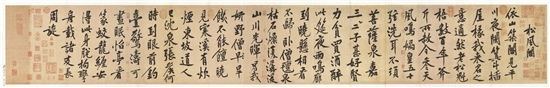 松風閣
依山築閣見平
川夜闌箕斗插
屋椽我來名之
意適然老松魁
梧數百年斧
斤所赦今參天
風鳴媧皇五十
絃洗耳不須
菩薩泉嘉二
三子甚好賢
力貧買酒醉
此筵夜雨鳴廊
到曉懸相看
不歸臥僧氈泉
枯石燥復潺湲
山川光暉為我
妍野僧旱飢
不能饘曉
見寒溪有炊
煙東坡道人
已沈泉張侯何
時到眼前釣
臺驚濤可
晝眠怡亭看
篆蛟龍纏安
得此身脫拘攣
舟載諸友長
周旋